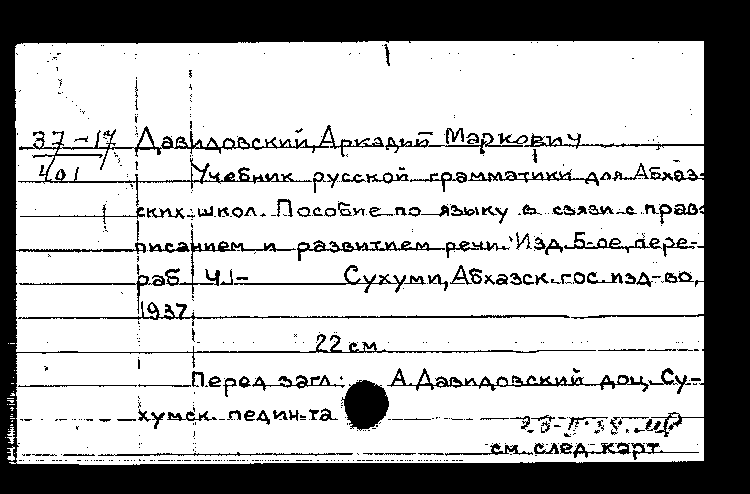 37-17
401
Давидовский, Аркадий Маркович
Учебник русской грамматики для Абхаз-
ских школ. Пособие по языку в связи с право
писанием и развитием речи. Изд. 5-ое, пере-
раб. Ч.I- Сухуми, Абхазск. гос. изд-во,
1937.
22 см.
Перед загл.: А. Давидовский доц. Су-
хумск. педин-та
см. след. карт.